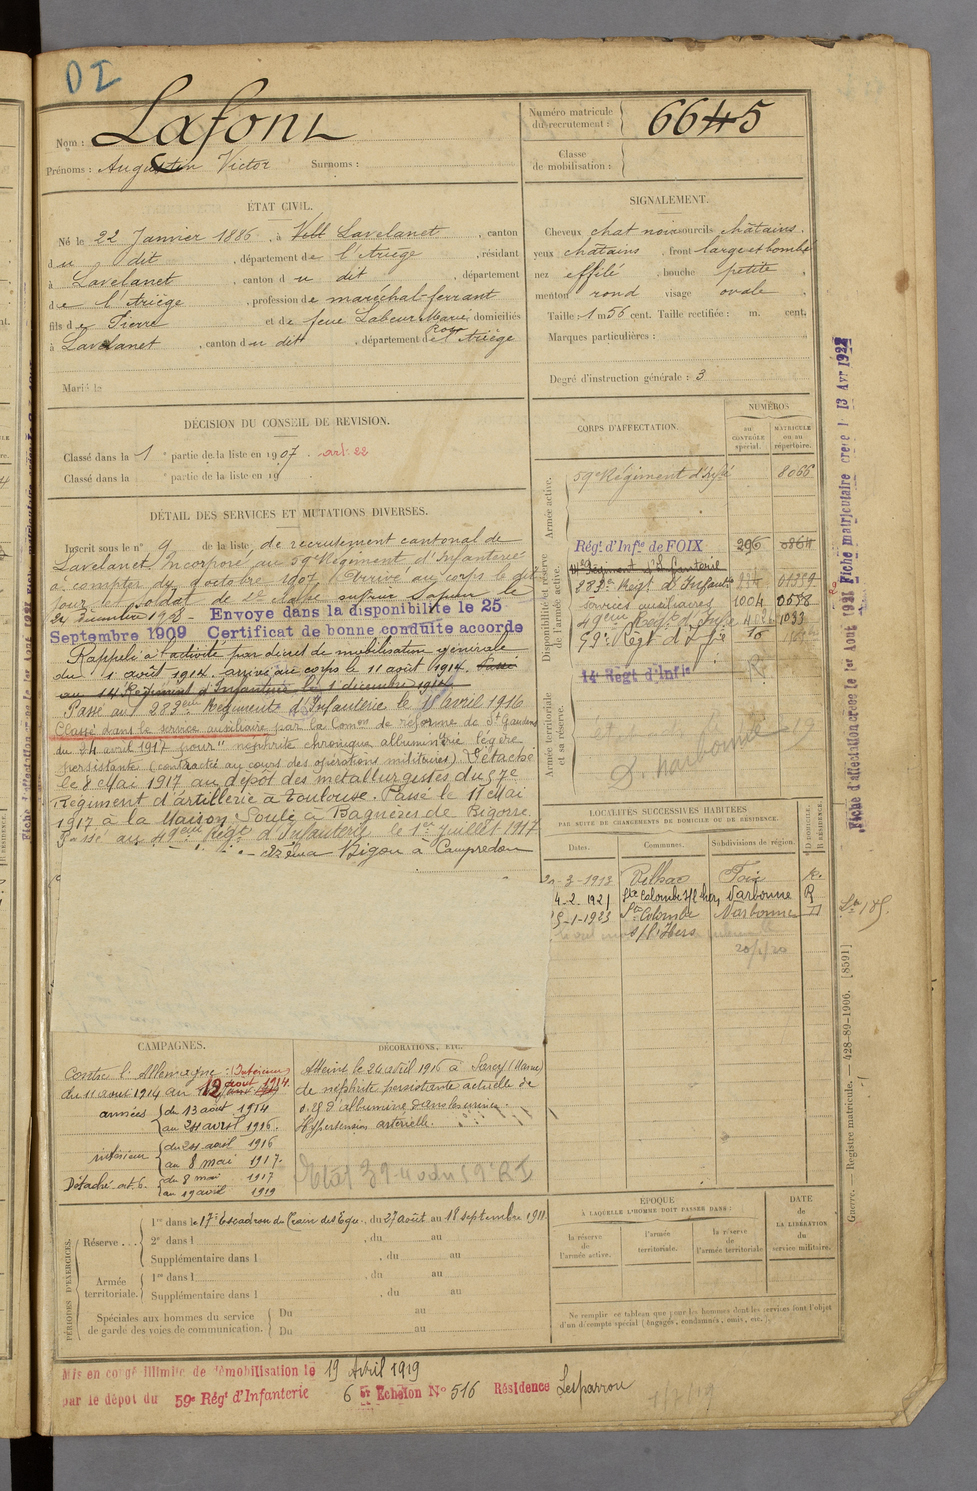 DI
Nom : Lafont
Prénoms : Augustin Victor Surnoms :
Numéro matricule du recrutement : 6645
Classe de mobilisation :
ÉTAT CIVIL.
Né le 22 Janvier 1886, à Lavelanet, canton
du dit, département de l'Ariège, résidant
à Lavelanet, canton du dit, département
de l'Ariège, profession de maréchal-ferrant
fils de Pierre et de feue Labeur Marie Rose domiciliés
à Lavelanet, canton du dit, département de l'Ariège
Marié le
SIGNALEMENT.
Cheveux chat noir sourcils châtains.
yeux châtains, front large et bombé
nez effilé, bouche petite,
menton rond visage ovale.
Taille : 1 m 56 cent. Taille rectifiée : m. cent.
Marques particulières :
Degré d'instruction générale : 3
DÉCISION DU CONSEIL DE REVISION.
Classé dans la 1e partie de la liste en 1907. art. 22
Classé dans la e partie de la liste en 19
DÉTAIL DES SERVICES ET MUTATIONS DIVERSES.
Inscrit sous le n° 9 de la liste de recrutement cantonal de
Lavelanet. Incorporé au 59e Régiment d'Infanterie
à compter du 9 octobre 1907. Arrivé au corps le dit
jour et soldat de 2e classe. Sapeur le
24 décembre 1908. Envoye dans la disponibilite le 25
Septembre 1909 Certificat de bonne conduite accorde
Rappelé à l'activité par décret de mobilisation générale
du 1 août 1914. arrivé au corps le 11 août 1914. Passé
au 14 Régiment d'Infanterie le 1 décembre 1914
Passé au 283eme Régiment d'Infanterie le 11 avril 1916
Classé dans le service auxiliaire par la Comon de réforme de St Gaudens
du 24 avril 1917 pour "néphrite chronique albuminurie légère
persistante (contractée au cours des opérations militaires). Détaché
le 8 Mai 1917 au dépôt des métallurgistes du 57e
Régiment d'artillerie à Toulouse. Passé le 11 Mai
1917 à la Maison Soulé à Bagnères de Bigorre.
Passé au 49eme Régt d'Infanterie le 1er juillet 1917
Bigou à Campredon
CORPS D'AFFECTATION.
NUMÉROS
au CONTRÔLE spécial.
MATRICULE ou au répertoire.
Armée active.
59e Régiment d'Infie 8066
Disponibilité et réserve de l'armée active.
Régt d'Infie de FOIX 296
14e Régiment d'Infanterie
283me Régt d'Infanterie
services auxiliaires 1004
49eme Régt d'Infie 1033
59e Régt d'Infie
14e Regt d'Infie
Armée territoriale et sa réserve.
D. Narbonne 19
LOCALITÉS SUCCESSIVES HABITÉES
PAR SUITE DE CHANGEMENTS DE DOMICILE OU DE RÉSIDENCE.
Dates. Communes. Subdivisions de région. D DOMICILE. R RÉSIDENCE.
3-1913 Pelhac Foix R.
4-2-1921 Ste Colombe s/l'Hers Narbonne R
5-1-1923 Ste Colombe Narbonne D
s/l'Hers
CAMPAGNES.
Contre l'Allemagne : Intérieur
du 11 aout 1914 au 12 aout 1914.
armées { du 13 aout 1914
au 24 avril 1916.
intérieur { du 24 avril 1916
au 8 mai 1917.
Détaché art. 6. { du 8 mai 1917
au 19 avril 1919
DÉCORATIONS, ETC.
Atteint le 24 avril 1916 à Sarcy (Marne)
de néphrite persistante actuelle de
d'albumine dans les urines.
Hypertension artérielle.
PÉRIODES D'EXERCICES.
Réserve... 1re dans le 17e Escadron du Train des Equ., du 27 août au 18 septembre 1911
2e dans l , du au
Supplémentaire dans l , du au
Armée territoriale. 1re dans l , du au
Supplémentaire dans l , du au
Spéciales aux hommes du service de garde des voies de communication. Du au
Du au
ÉPOQUE
À LAQUELLE L'HOMME DOIT PASSER DANS :
la réserve de l'armée active.
l'armée territoriale.
la réserve de l'armée territoriale
DATE de LA LIBÉRATION du service militaire.
Ne remplir ce tableau que pour les hommes dont les services font l'objet
d'un décompte spécial (engagés, condamnés, omis, etc.).
Mis en congé illimité de démobilisation le 19 Avril 1919
par le dépot du 59e Rég. d'Infanterie 6 er Echelon N° 516 Résidence Lesparrou
Fiche d'affectation créée le 1er Aout 1921 Fiche matriculaire creee l 13 Avr 1922
Guerre. — Registre matricule. — 428-89-1906. [8591]